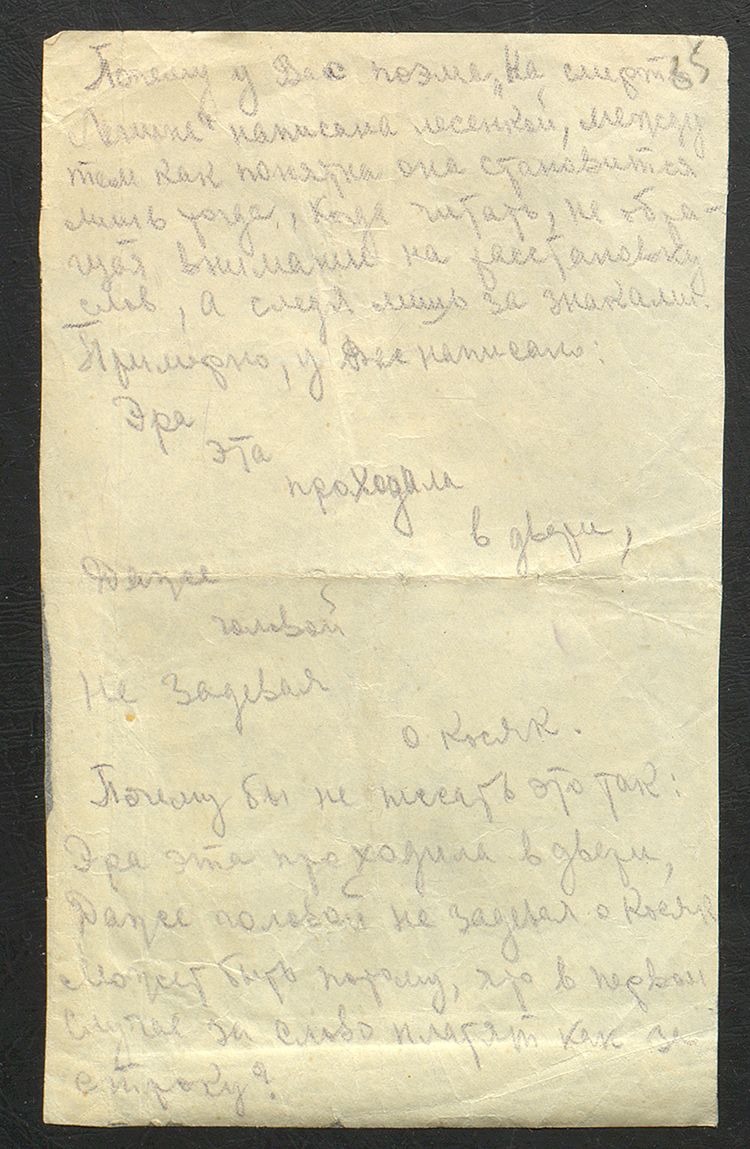 65
Почему у Вас поэма „На смерть
Ленина" написана лесенкой, между
тем как понятна она становится
лишь тогда, когда читать, не обра-
щая внимание на расстановку
слов, а следя лишь за знаками.
Примерно, у Вас написано:
Эра
эта
проходила
в двери,
Даже
головой
Не задевая
о косяк.
Почему бы не писать это так:
Эра эта проходила в двери,
Даже головой не задевая о косяк
Может быть потому, что в первом
случае за слово платят как за
строку?